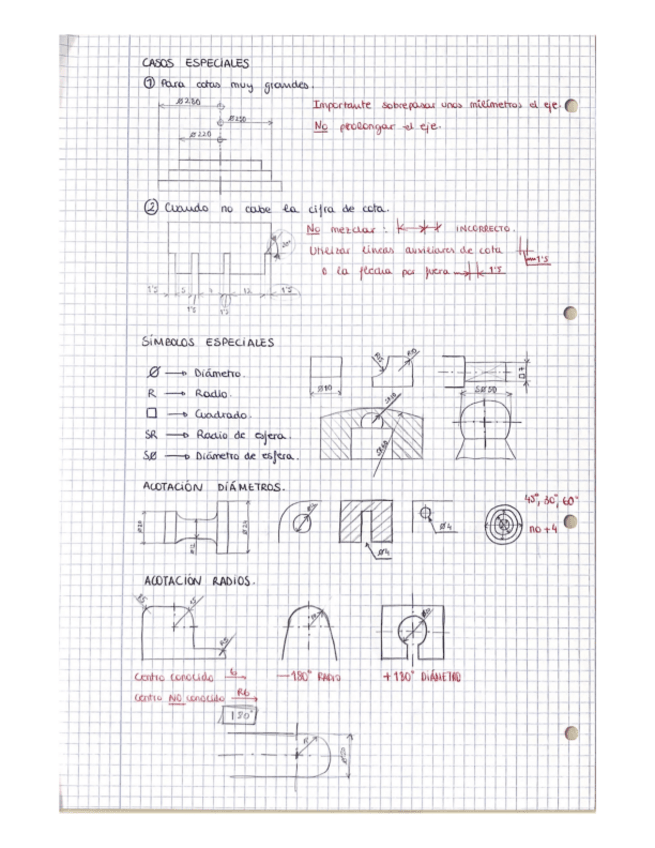 CASOS ESPECIALES
① Para cotas muy grandes.
Ø280
Ø250
Ø220
Importante sobrepasar unos milímetros el eje.
No prolongar el eje.
② Cuando no cabe la cifra de cota.
No mezclar: INCORRECTO.
Utilizar líneas auxiliares de cota
1'5
o la flecha por fuera 1'5
20°
1'5 5 4 12 1'5
1'5
SÍMBOLOS ESPECIALES
Ø → Diámetro.
R → Radio.
□ → Cuadrado.
SR → Radio de esfera.
SØ → Diámetro de esfera.
□7
SØ50
ACOTACIÓN DIÁMETROS.
Ø4
Ø4
45°, 30°, 60°
no + 4
ACOTACIÓN RADIOS.
Centro conocido 6
Centro NO conocido R6
-180° RADIO
+180° DIÁMETRO
180°
R